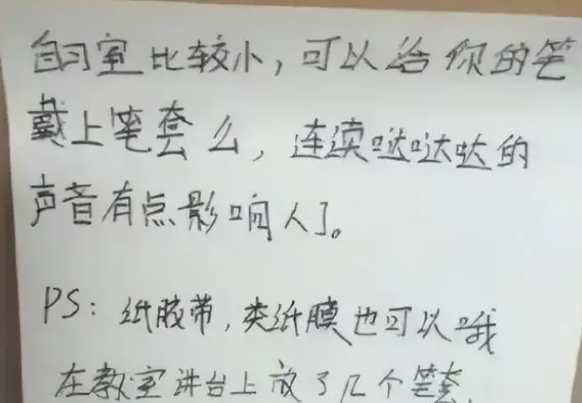 自习室比较小，可以给你的笔
戴上笔套么，连续哒哒哒的
声音有点影响人了。
PS：纸胶带，类纸膜也可以哦
在教室讲台上放了几个笔套，